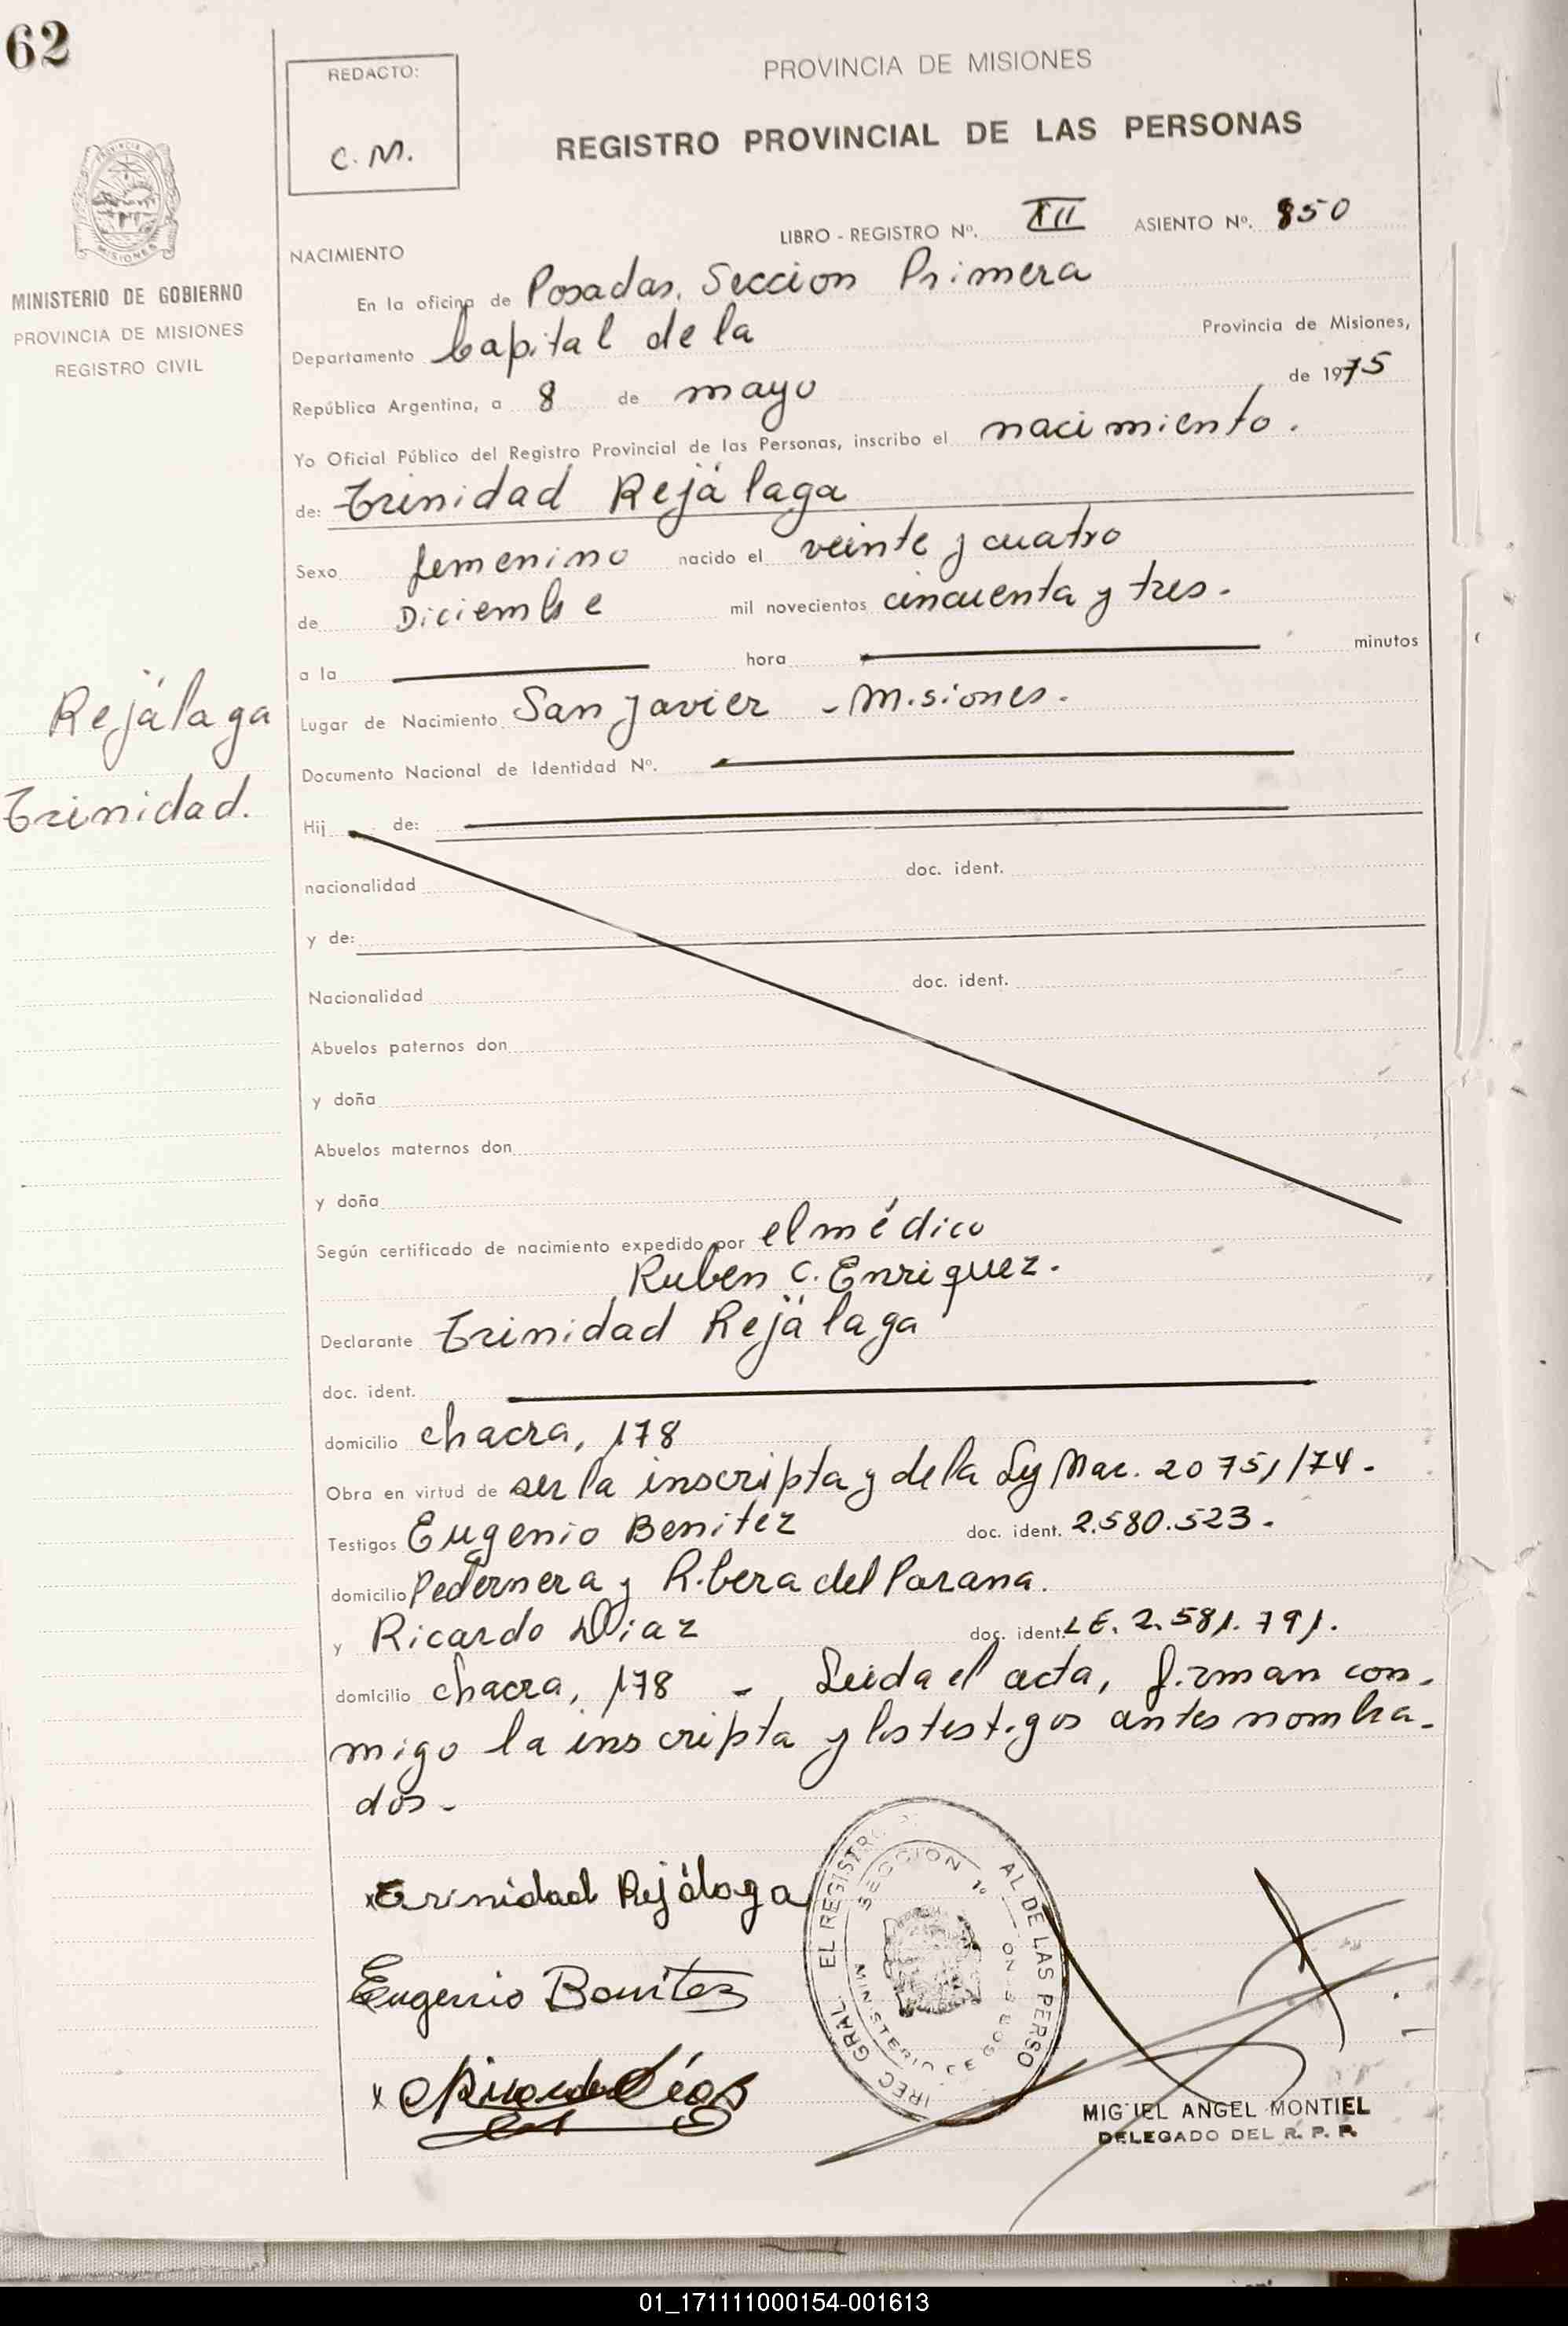 62
REDACTO:
C. M.
PROVINCIA DE MISIONES
REGISTRO PROVINCIAL DE LAS PERSONAS
PROVINCIA DE
MISIONES
MINISTERIO DE GOBIERNO
PROVINCIA DE MISIONES
REGISTRO CIVIL
LIBRO - REGISTRO Nº. XII ASIENTO Nº. 850
NACIMIENTO
En la oficina de Posadas, Seccion Primera
Departamento Capital de la Provincia de Misiones,
República Argentina, a 8 de mayo de 1975
Yo Oficial Público del Registro Provincial de las Personas, inscribo el nacimiento.
de: Trinidad Rejálaga
Sexo femenino nacido el veinte y cuatro
de Diciembre mil novecientos cincuenta y tres.
a la hora minutos
Rejálaga
Trinidad.
Lugar de Nacimiento San Javier - Misiones.
Documento Nacional de Identidad Nº.
Hij de:
nacionalidad doc. ident.
y de:
Nacionalidad doc. ident.
Abuelos paternos don
y doña
Abuelos maternos don
y doña
Según certificado de nacimiento expedido por el médico
Ruben C. Enriquez.
Declarante Trinidad Rejälaga
doc. ident.
domicilio chacra, 178
Obra en virtud de ser la inscripta y de la Ley Nac. 20751/74.
Testigos Eugenio Benitez doc. ident. 2.580.523.
domicilio Pedernera y Ribera del Parana.
y Ricardo Diaz doc. ident. LE. 2.581.791.
domicilio chacra, 178 - Leida el acta, firman con-
migo la inscripta y los testigos antes nombra-
dos-
x Trinidad Rejálaga
Eugenio Benitez
x Ricardo Díaz
IREC. GRAL. EL REGISTRO AL DE LAS PERSO
SECCION 1º
MINISTERIO DE GOBIERNO
MIG IEL ANGEL MONTIEL
DELEGADO DEL R. P. P.
01_171111000154-001613